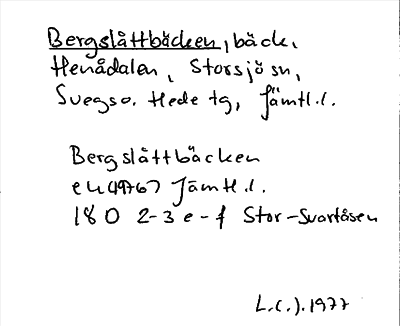 Bergslåttbäcken, bäck,
Henådalen, Storsjö sn,
Svegs o. Hede tg, Jämtl.l.
Bergslåttbäcken
Jämtl.l.
18 D 2-3 e-f Stor-Svartåsen
L.C.J. 1977